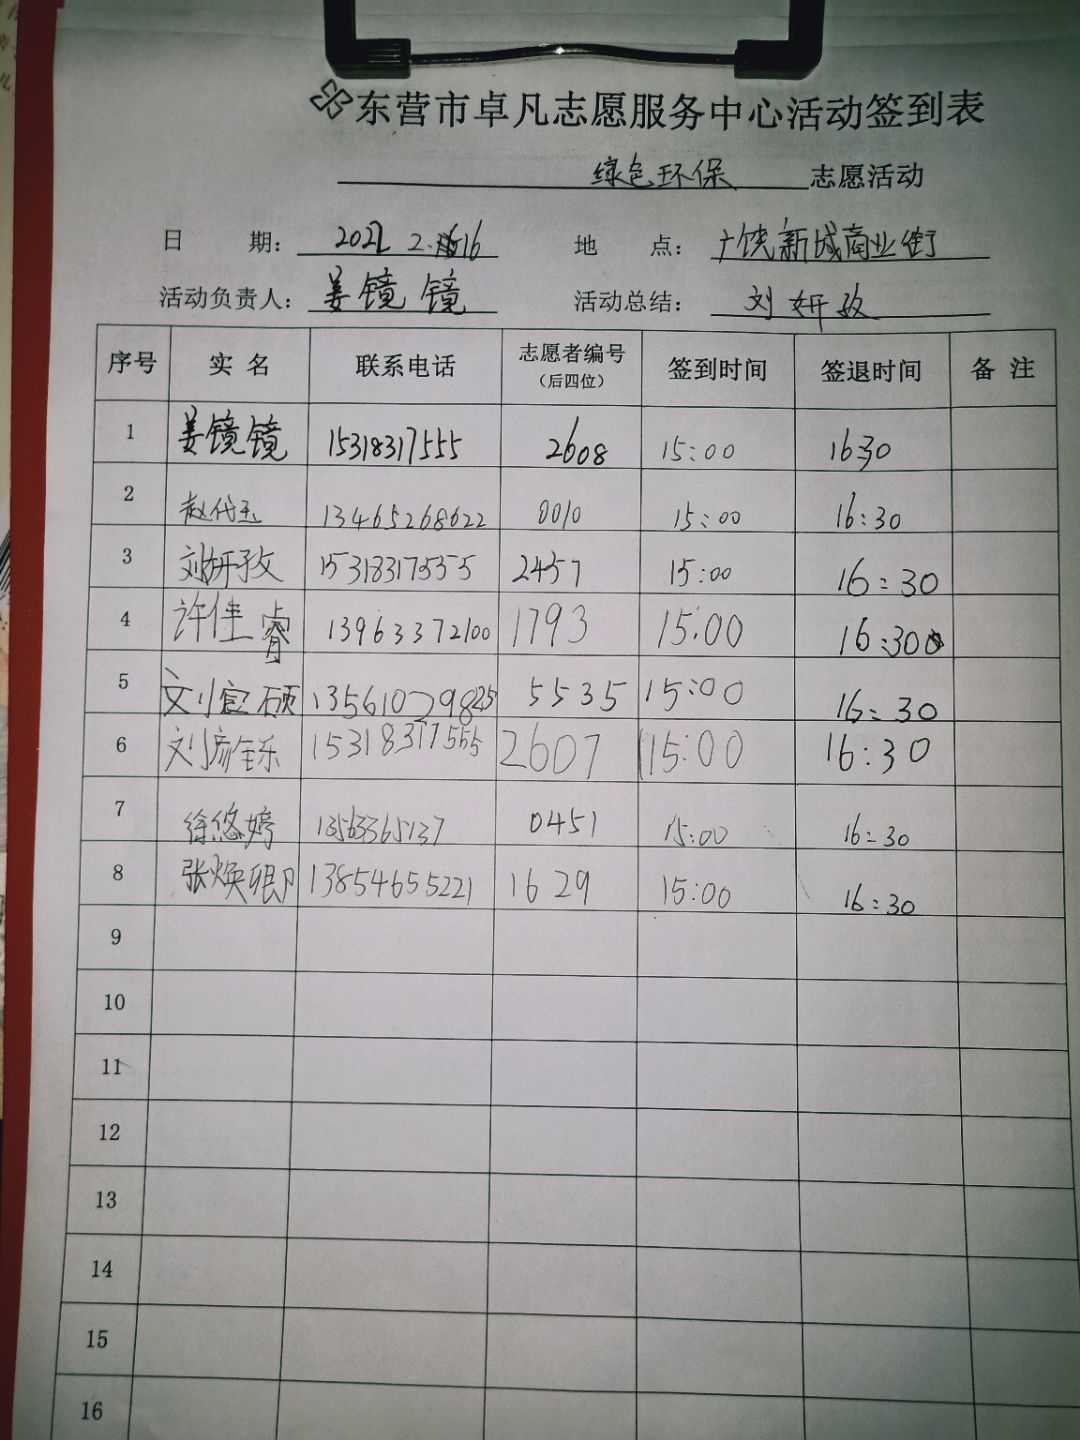 东营市卓凡志愿服务中心活动签到表
绿色环保 志愿活动
日 期: 2022 2.16 地 点: 广饶新城商业街
活动负责人: 姜镜镜 活动总结: 刘妍孜
序号 实名 联系电话 志愿者编号（后四位） 签到时间 签退时间 备注
1 姜镜镜 15318317555 2608 15:00 16:30
2 赵代玉 13465268622 0010 15:00 16:30
3 刘妍孜 15318317555 2457 15:00 16:30
4 许佳睿 13963372100 1793 15:00 16:30
5 刘宜硕 5535 15:00 16:30
6 刘彦乐 15318317555 2607 15:00 16:30
7 徐悠婷 13563365137 0451 15:00 16:30
8 张焕卿 13854655221 1629 15:00 16:30
9
10
11
12
13
14
15
16